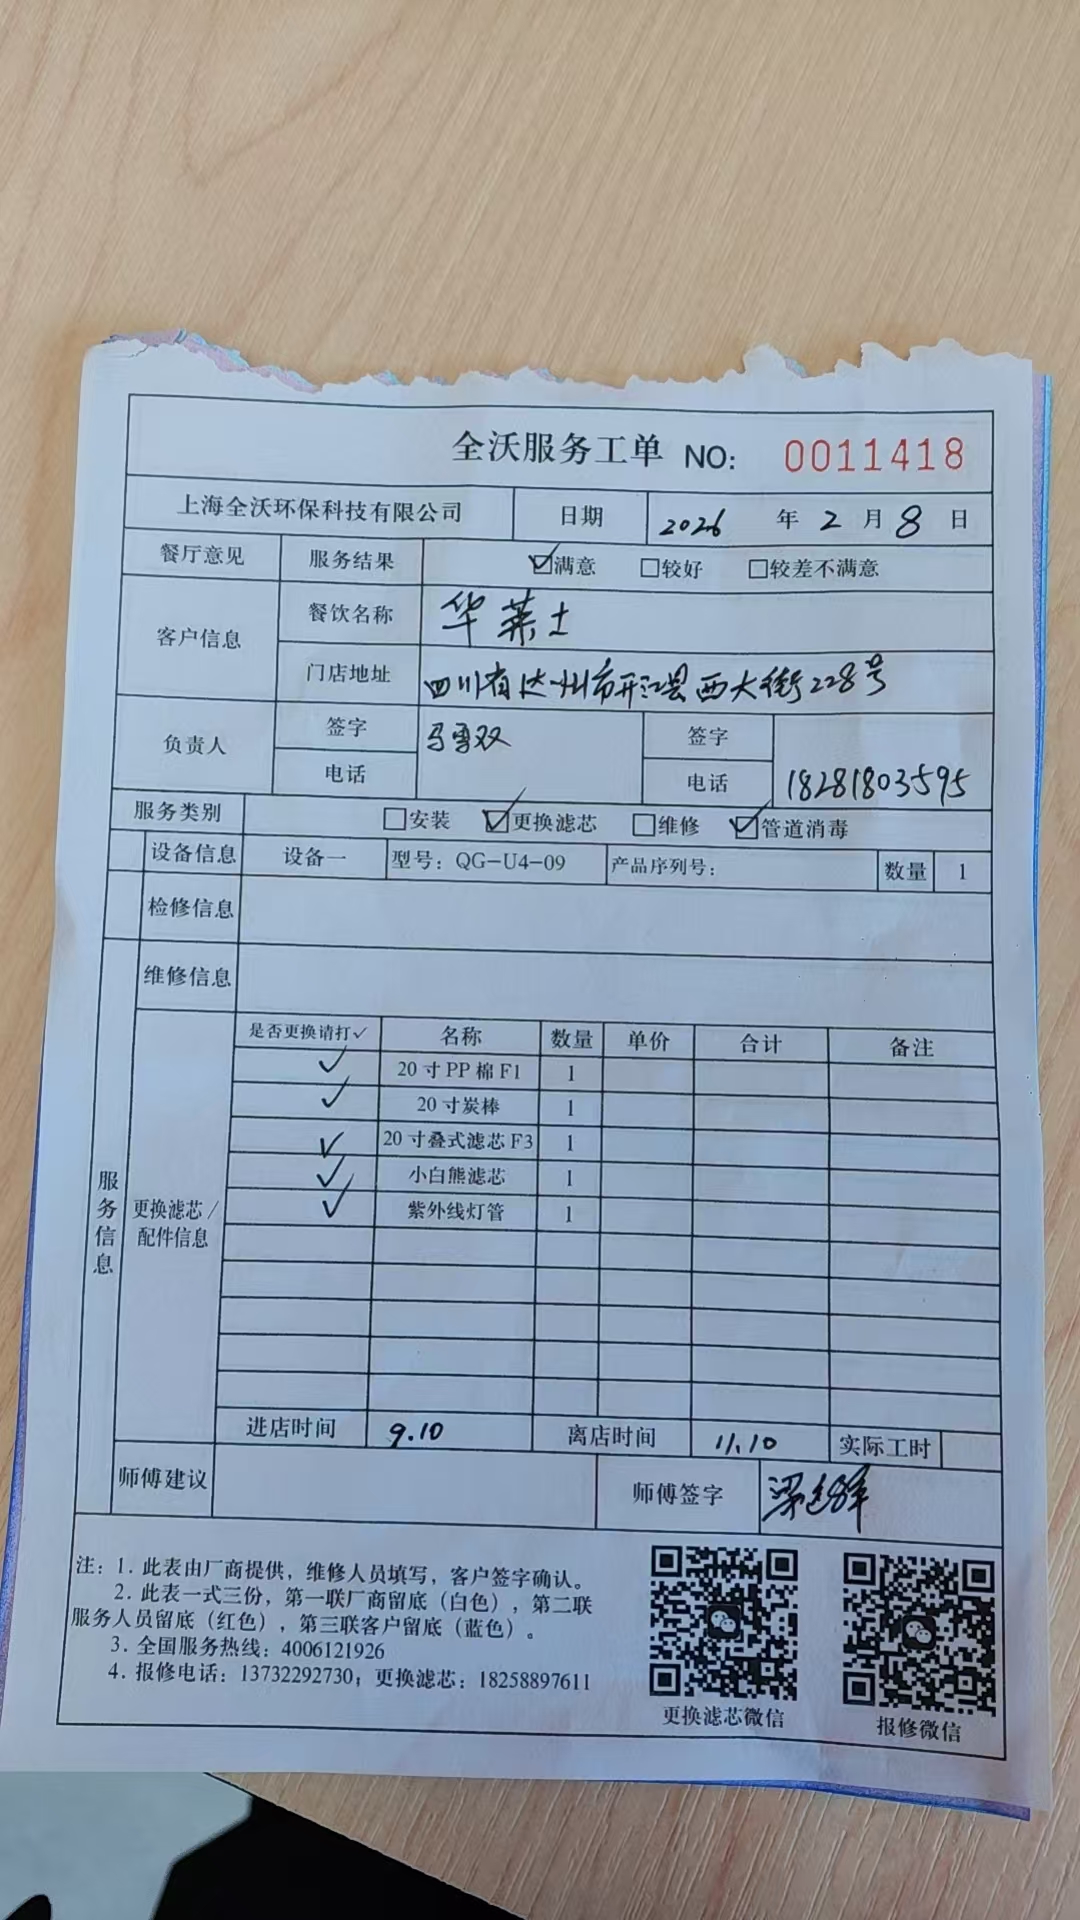 全沃服务工单 NO: 0011418
上海全沃环保科技有限公司 日期 2026 年 2 月 8 日
餐厅意见 服务结果 ☑满意 □较好 □较差不满意
客户信息 餐饮名称 华莱士
门店地址 四川省达州市开江县西大街228号
负责人 签字 马雪双 签字
电话 电话 18281803595
服务类别 □安装 ☑更换滤芯 □维修 ☑管道消毒
设备信息 设备一 型号：QG-U4-09 产品序列号： 数量 1
检修信息
维修信息
服务信息
更换滤芯/配件信息
是否更换请打✓ 名称 数量 单价 合计 备注
✓ 20寸PP棉F1 1
✓ 20寸炭棒 1
✓ 20寸叠式滤芯F3 1
✓ 小白熊滤芯 1
✓ 紫外线灯管 1
进店时间 9.10 离店时间 11.10 实际工时
师傅建议 师傅签字
注：1. 此表由厂商提供，维修人员填写，客户签字确认。
2. 此表一式三份，第一联厂商留底（白色），第二联
服务人员留底（红色），第三联客户留底（蓝色）。
3. 全国服务热线：4006121926
4. 报修电话：13732292730；更换滤芯：18258897611
更换滤芯微信 报修微信